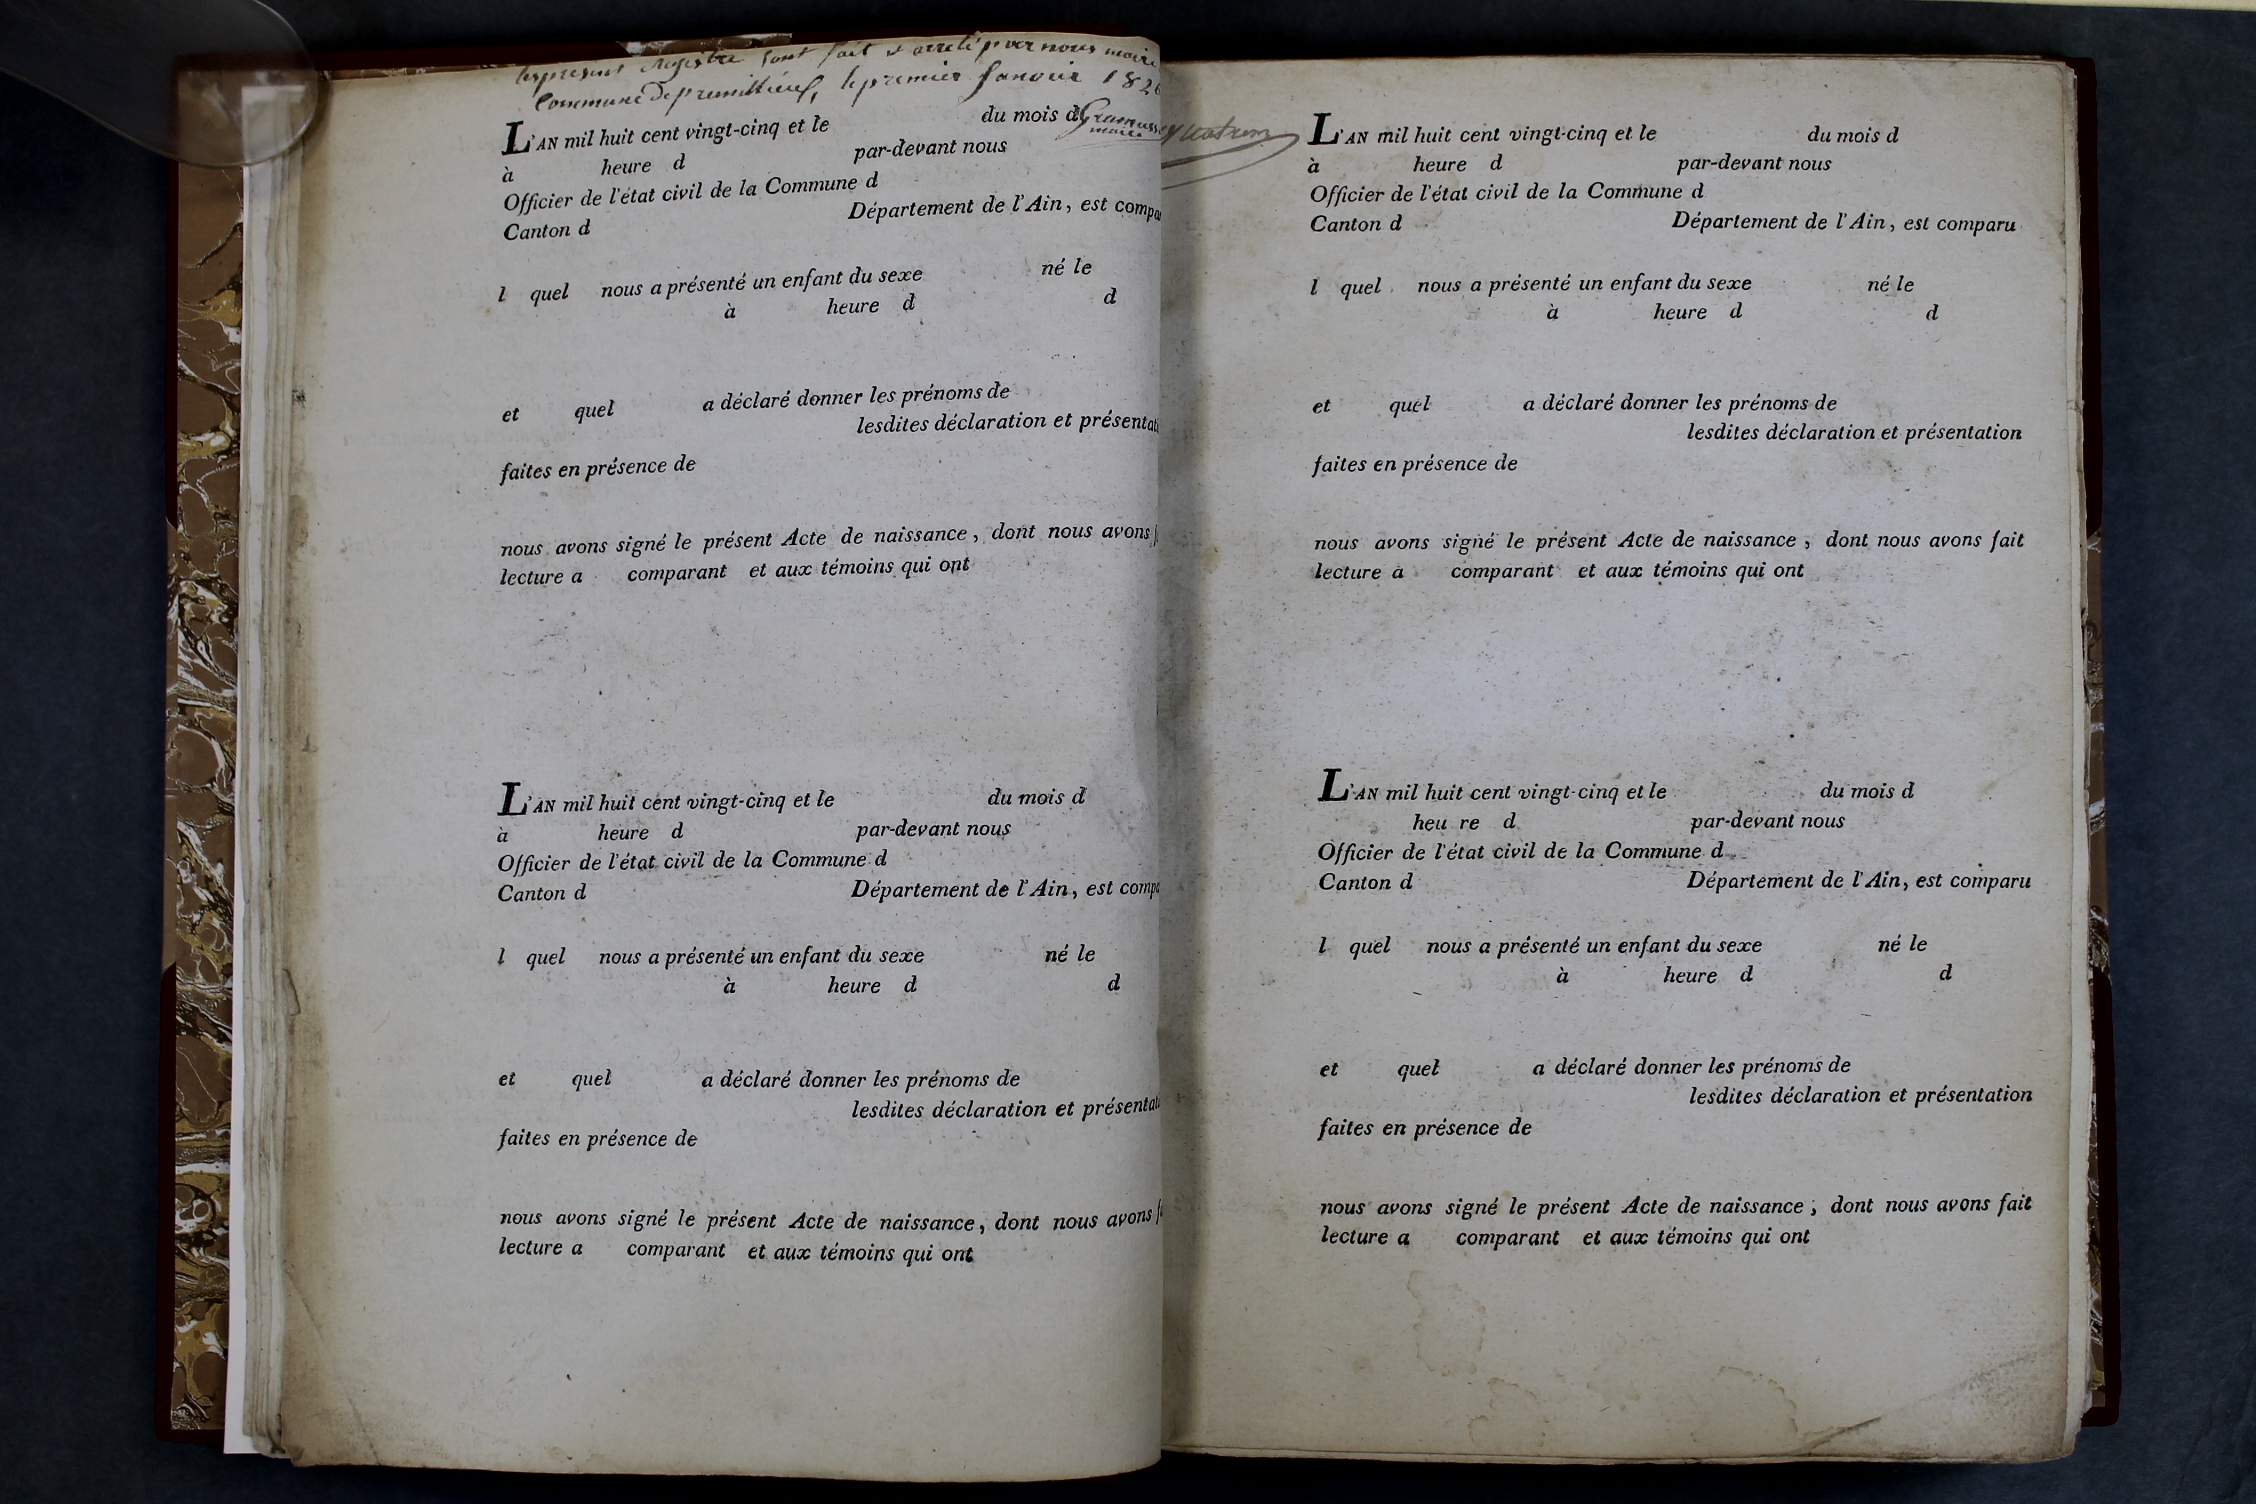 Registre sont fait et arreté par nous maire
Commune de premillieu, le premier Janvier 182
L'AN mil huit cent vingt-cinq et le du mois d
maire
à heure d par-devant nous
Officier de l'état civil de la Commune d
Canton d Département de l'Ain, est compa
l quel nous a présenté un enfant du sexe né le
à heure d d
et quel a déclaré donner les prénoms de
lesdites déclaration et présentat
faites en présence de
nous avons signé le présent Acte de naissance, dont nous avons f
lecture a comparant et aux témoins qui ont
L'AN mil huit cent vingt-cinq et le du mois d
à heure d par-devant nous
Officier de l'état civil de la Commune d
Canton d Département de l'Ain, est compa
l quel nous a présenté un enfant du sexe né le
à heure d d
et quel a déclaré donner les prénoms de
lesdites déclaration et présentat
faites en présence de
nous avons signé le présent Acte de naissance, dont nous avons f
lecture a comparant et aux témoins qui ont
L'AN mil huit cent vingt-cinq et le du mois d
à heure d par-devant nous
Officier de l'état civil de la Commune d
Canton d Département de l'Ain, est comparu
l quel nous a présenté un enfant du sexe né le
à heure d d
et quel a déclaré donner les prénoms de
lesdites déclaration et présentation
faites en présence de
nous avons signé le présent Acte de naissance, dont nous avons fait
lecture a comparant et aux témoins qui ont
L'AN mil huit cent vingt-cinq et le du mois d
heu re d par-devant nous
Officier de l'état civil de la Commune d
Canton d Département de l'Ain, est comparu
l quel nous a présenté un enfant du sexe né le
à heure d d
et quel a déclaré donner les prénoms de
lesdites déclaration et présentation
faites en présence de
nous avons signé le présent Acte de naissance, dont nous avons fait
lecture a comparant et aux témoins qui ont